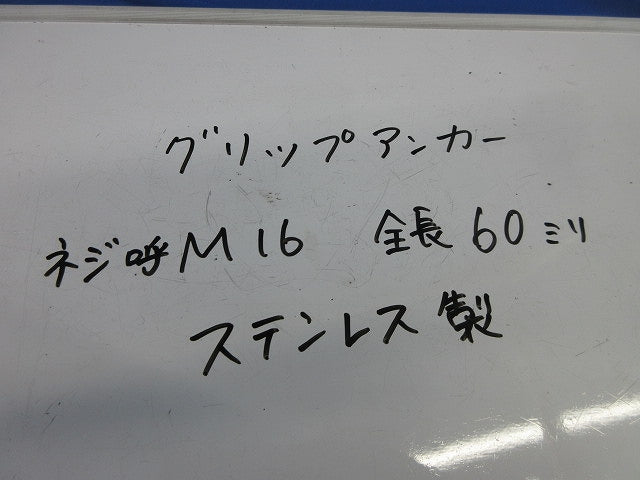 グリップアンカー
ネジ呼M16 全長60ミリ
ステンレス製